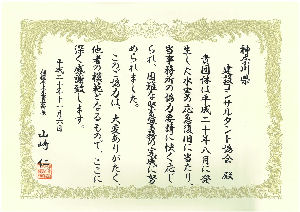 神奈川県
建設コンサルタント協会 殿
貴団体は平成二十年八月に発
生した水害の応急復旧に当たり、
当事務所の協力要請に快く応じ
られ、困難な緊急業務の完成に努
められました。
このご協力は、大変ありがたく、
他者の模範となるもので、ここに
深く感謝致します。
平成二十年十一月六日
山崎 仁